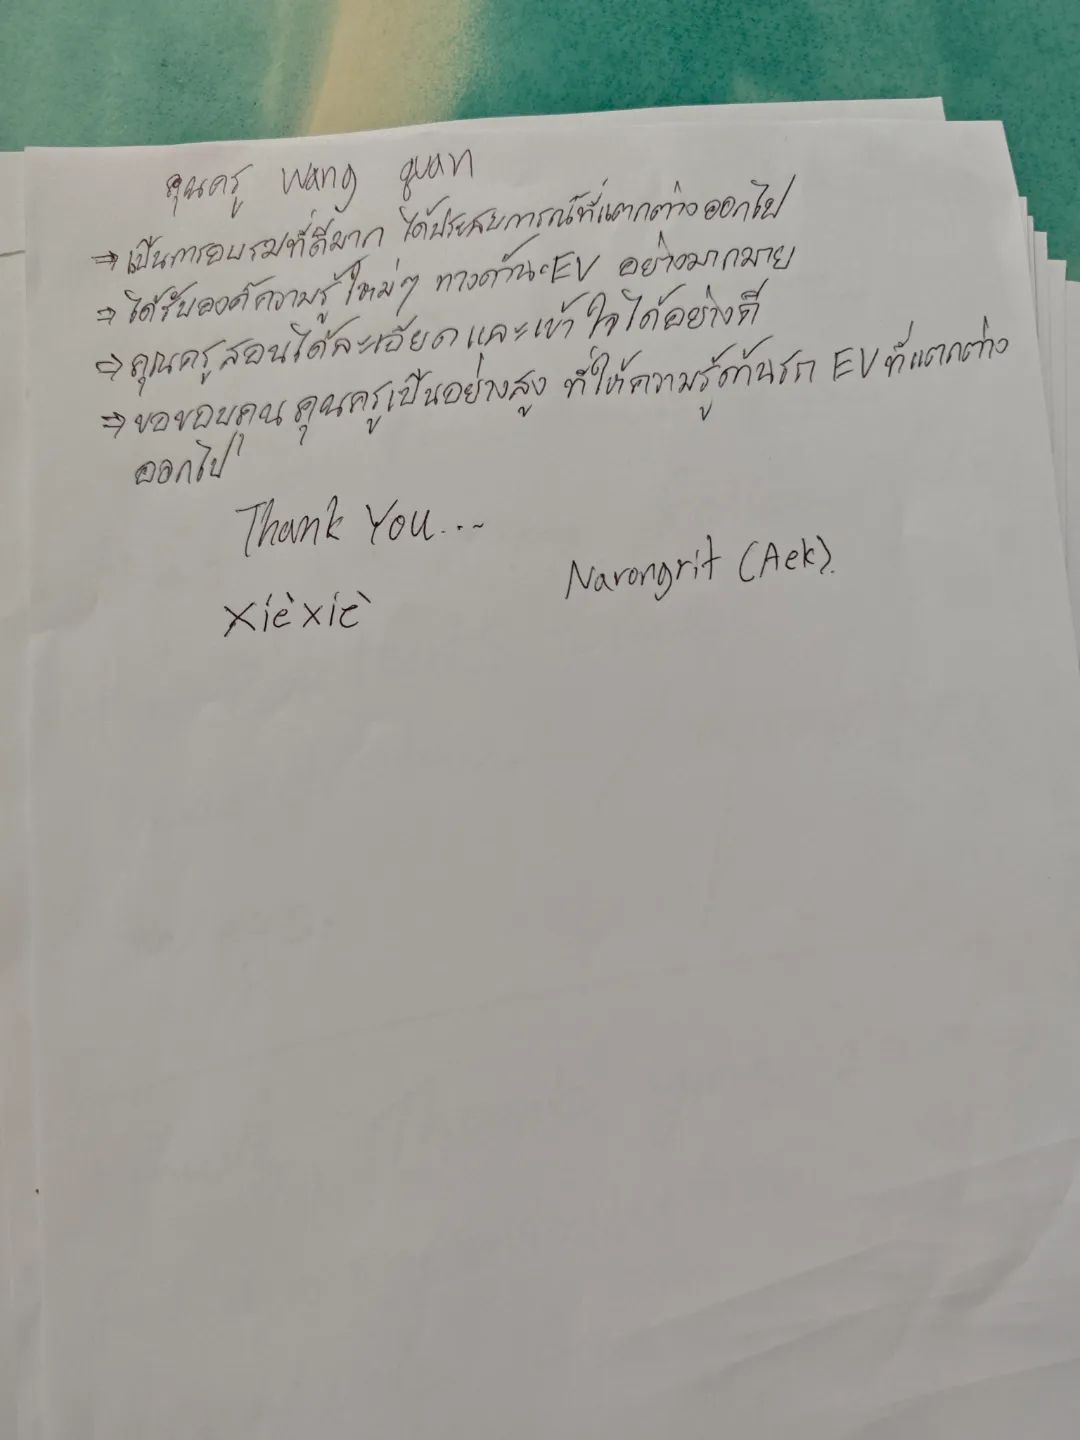 คุนครู Wang quan
⇒ เป็นการอบรมที่ดีมาก ได้ประสบการณ์ที่แตกต่างออกไป
⇒ ได้รับองค์ความรู้ใหม่ๆ ทางด้าน EV อย่างมากมาย
⇒ คุณครูสอนได้ละเอียดและเข้าใจได้อย่างดี
⇒ ขอขอบคุน คุนครูเป็นอย่างสูง ที่ให้ความรู้ด้านรถ EV ที่แตกต่าง
ออกไป
Thank You...
Narongrit (Aek).
xièxiè